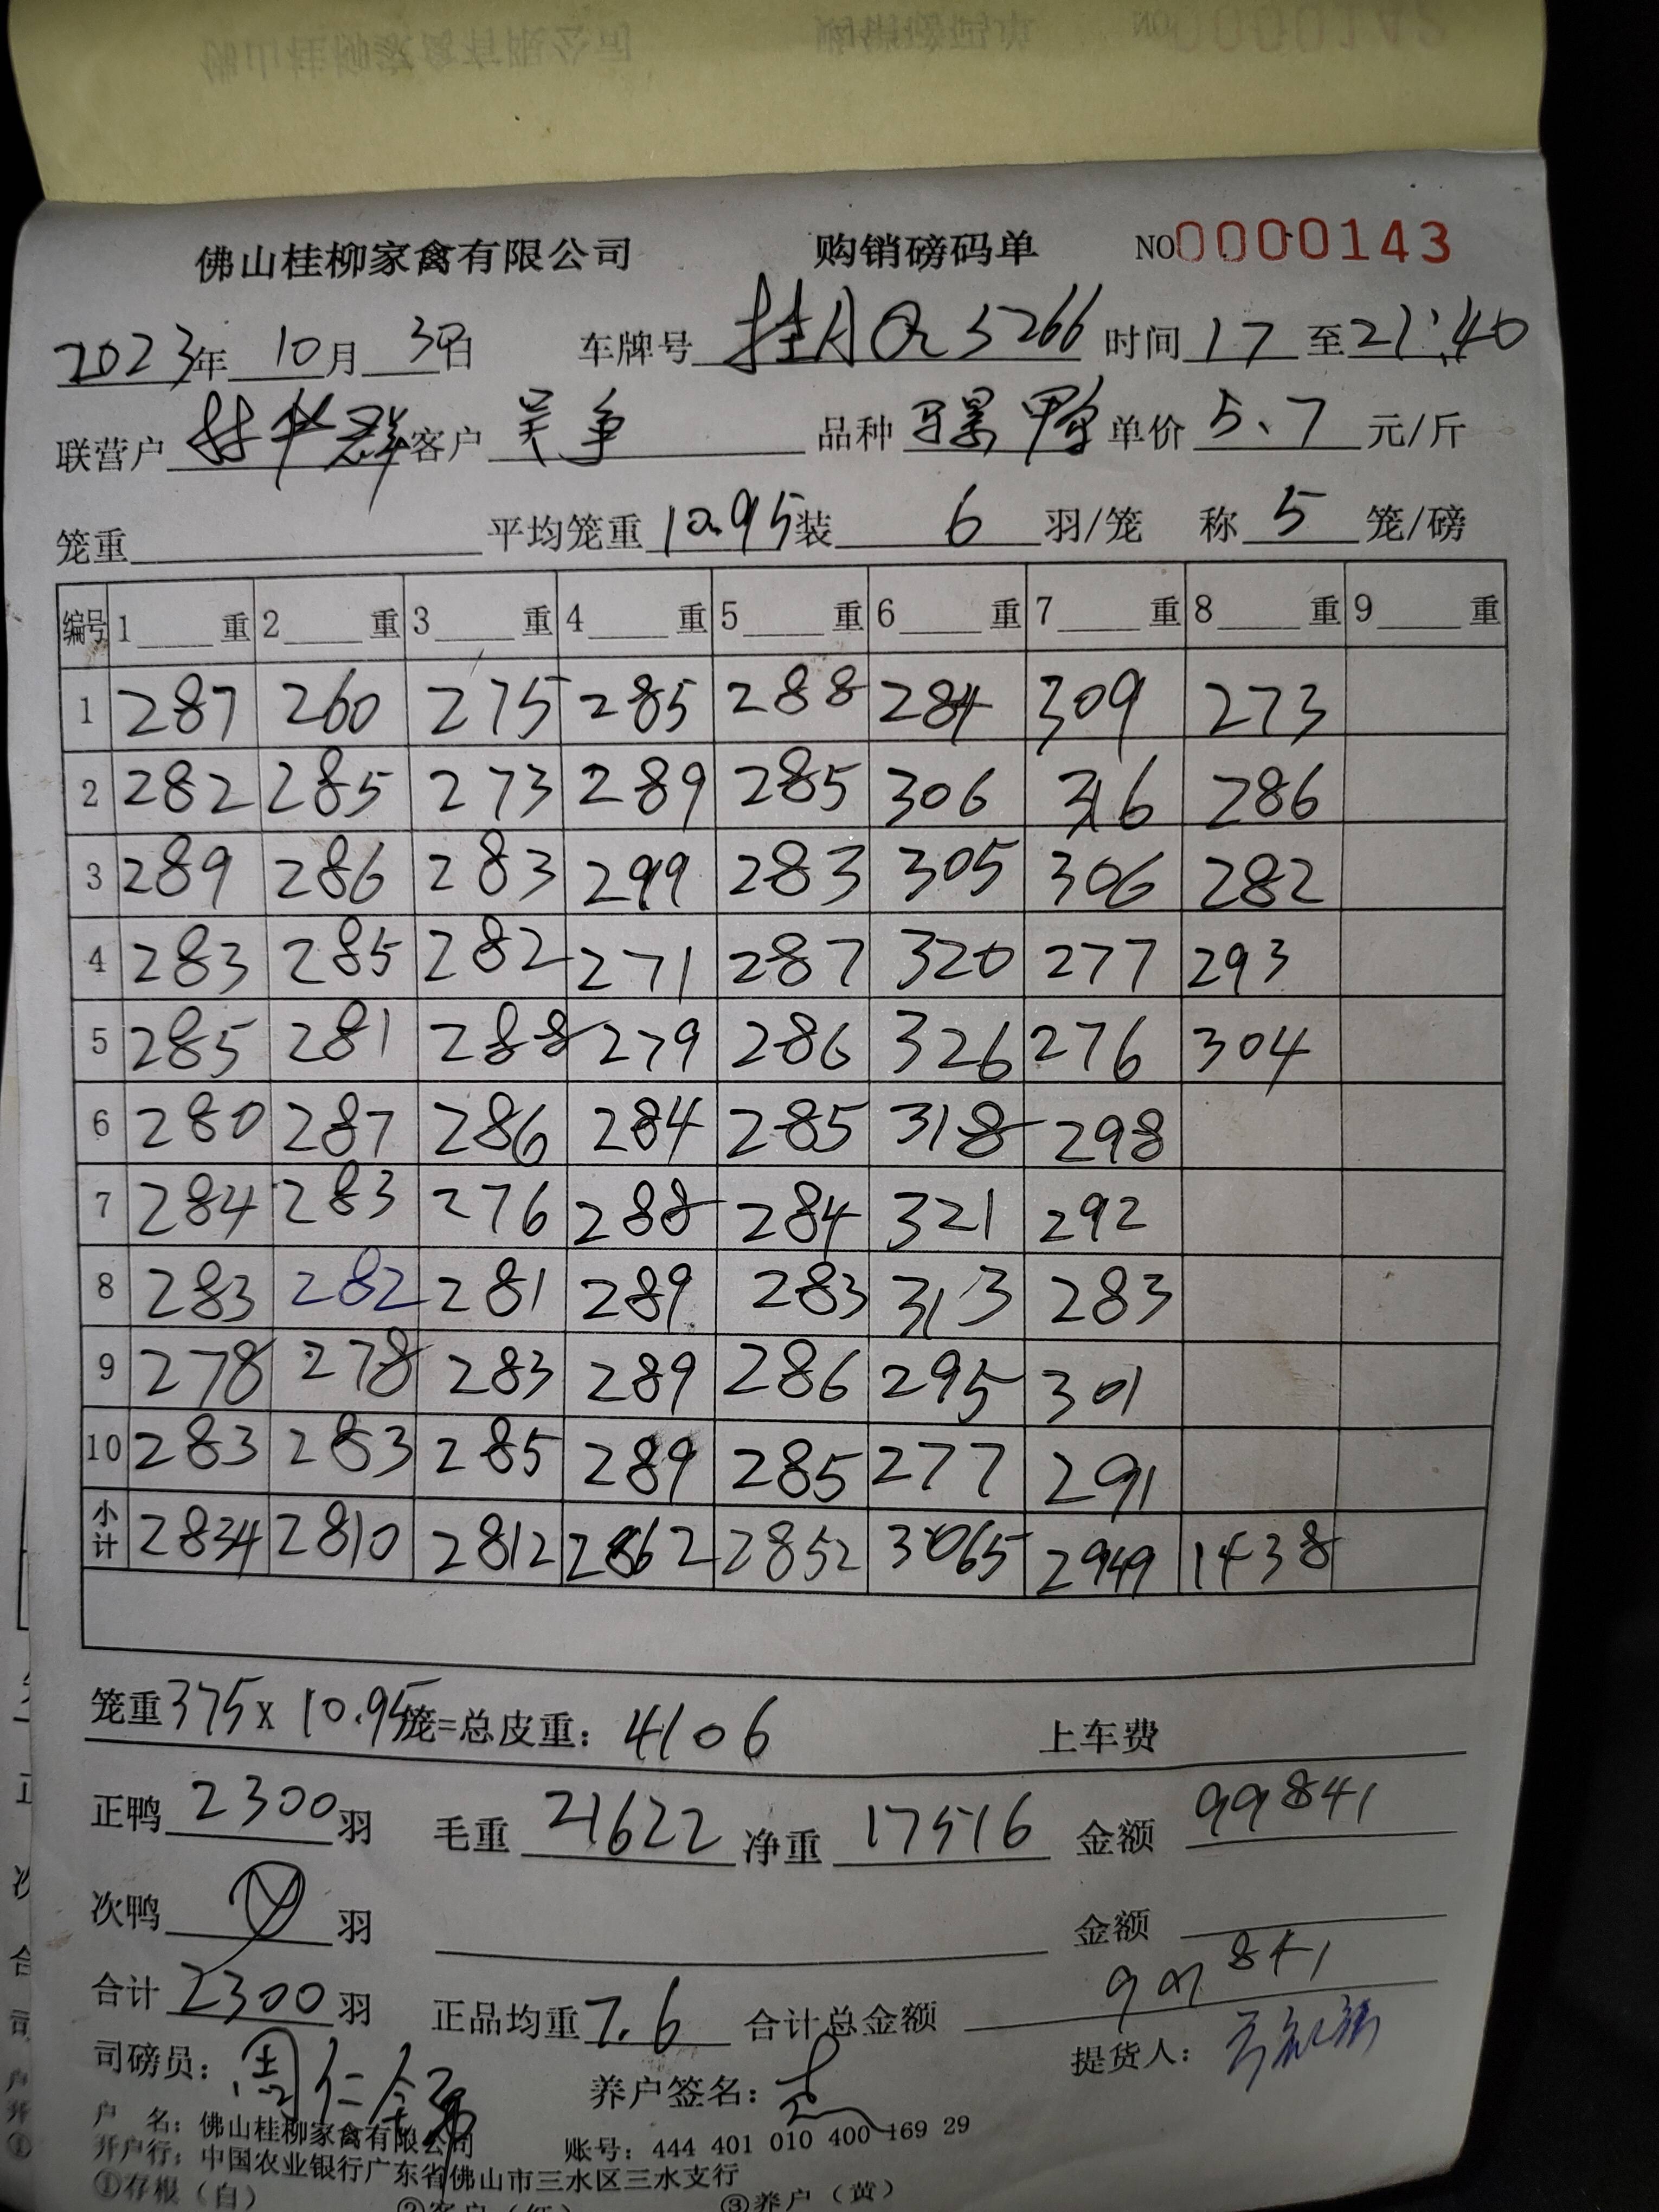 佛山桂柳家禽有限公司 购销磅码单 NO0000143
2023年 10月 3日 车牌号 桂AQ5266 时间 17 至 21:40
联营户 林华群 客户 吴争 品种 骡鸭 单价 5、7 元/斤
笼重 平均笼重 10.95 装 6 羽/笼 称 5 笼/磅
编号 1 重 2 重 3 重 4 重 5 重 6 重 7 重 8 重 9 重
1 287 260 275 285 288 284 309 273
2 282 285 273 289 285 306 316 286
3 289 286 283 299 283 305 306 282
4 283 285 282 271 287 320 277 293
5 285 281 288 279 286 326 276 304
6 280 287 286 284 285 318 298
7 284 283 276 288 284 321 292
8 283 282 281 289 283 313 283
9 278 278 283 289 286 295 301
10 283 283 285 289 285 277 291
小计 2834 2810 2812 2862 2852 3065 2949 1438
笼重 375 x 10.95 笼=总皮重: 4106 上车费
正鸭 2300 羽 毛重 21622 净重 17516 金额 99841
次鸭 羽 金额
合计 2300 羽 正品均重 7.6 合计总金额 99841
司磅员: 周仁 养户签名: 提货人:
户 名: 佛山桂柳家禽有限公司 账号: 444 401 010 400 169 29
开户行: 中国农业银行广东省佛山市三水区三水支行
①存根（白） ②客户（红） ③养户（黄）